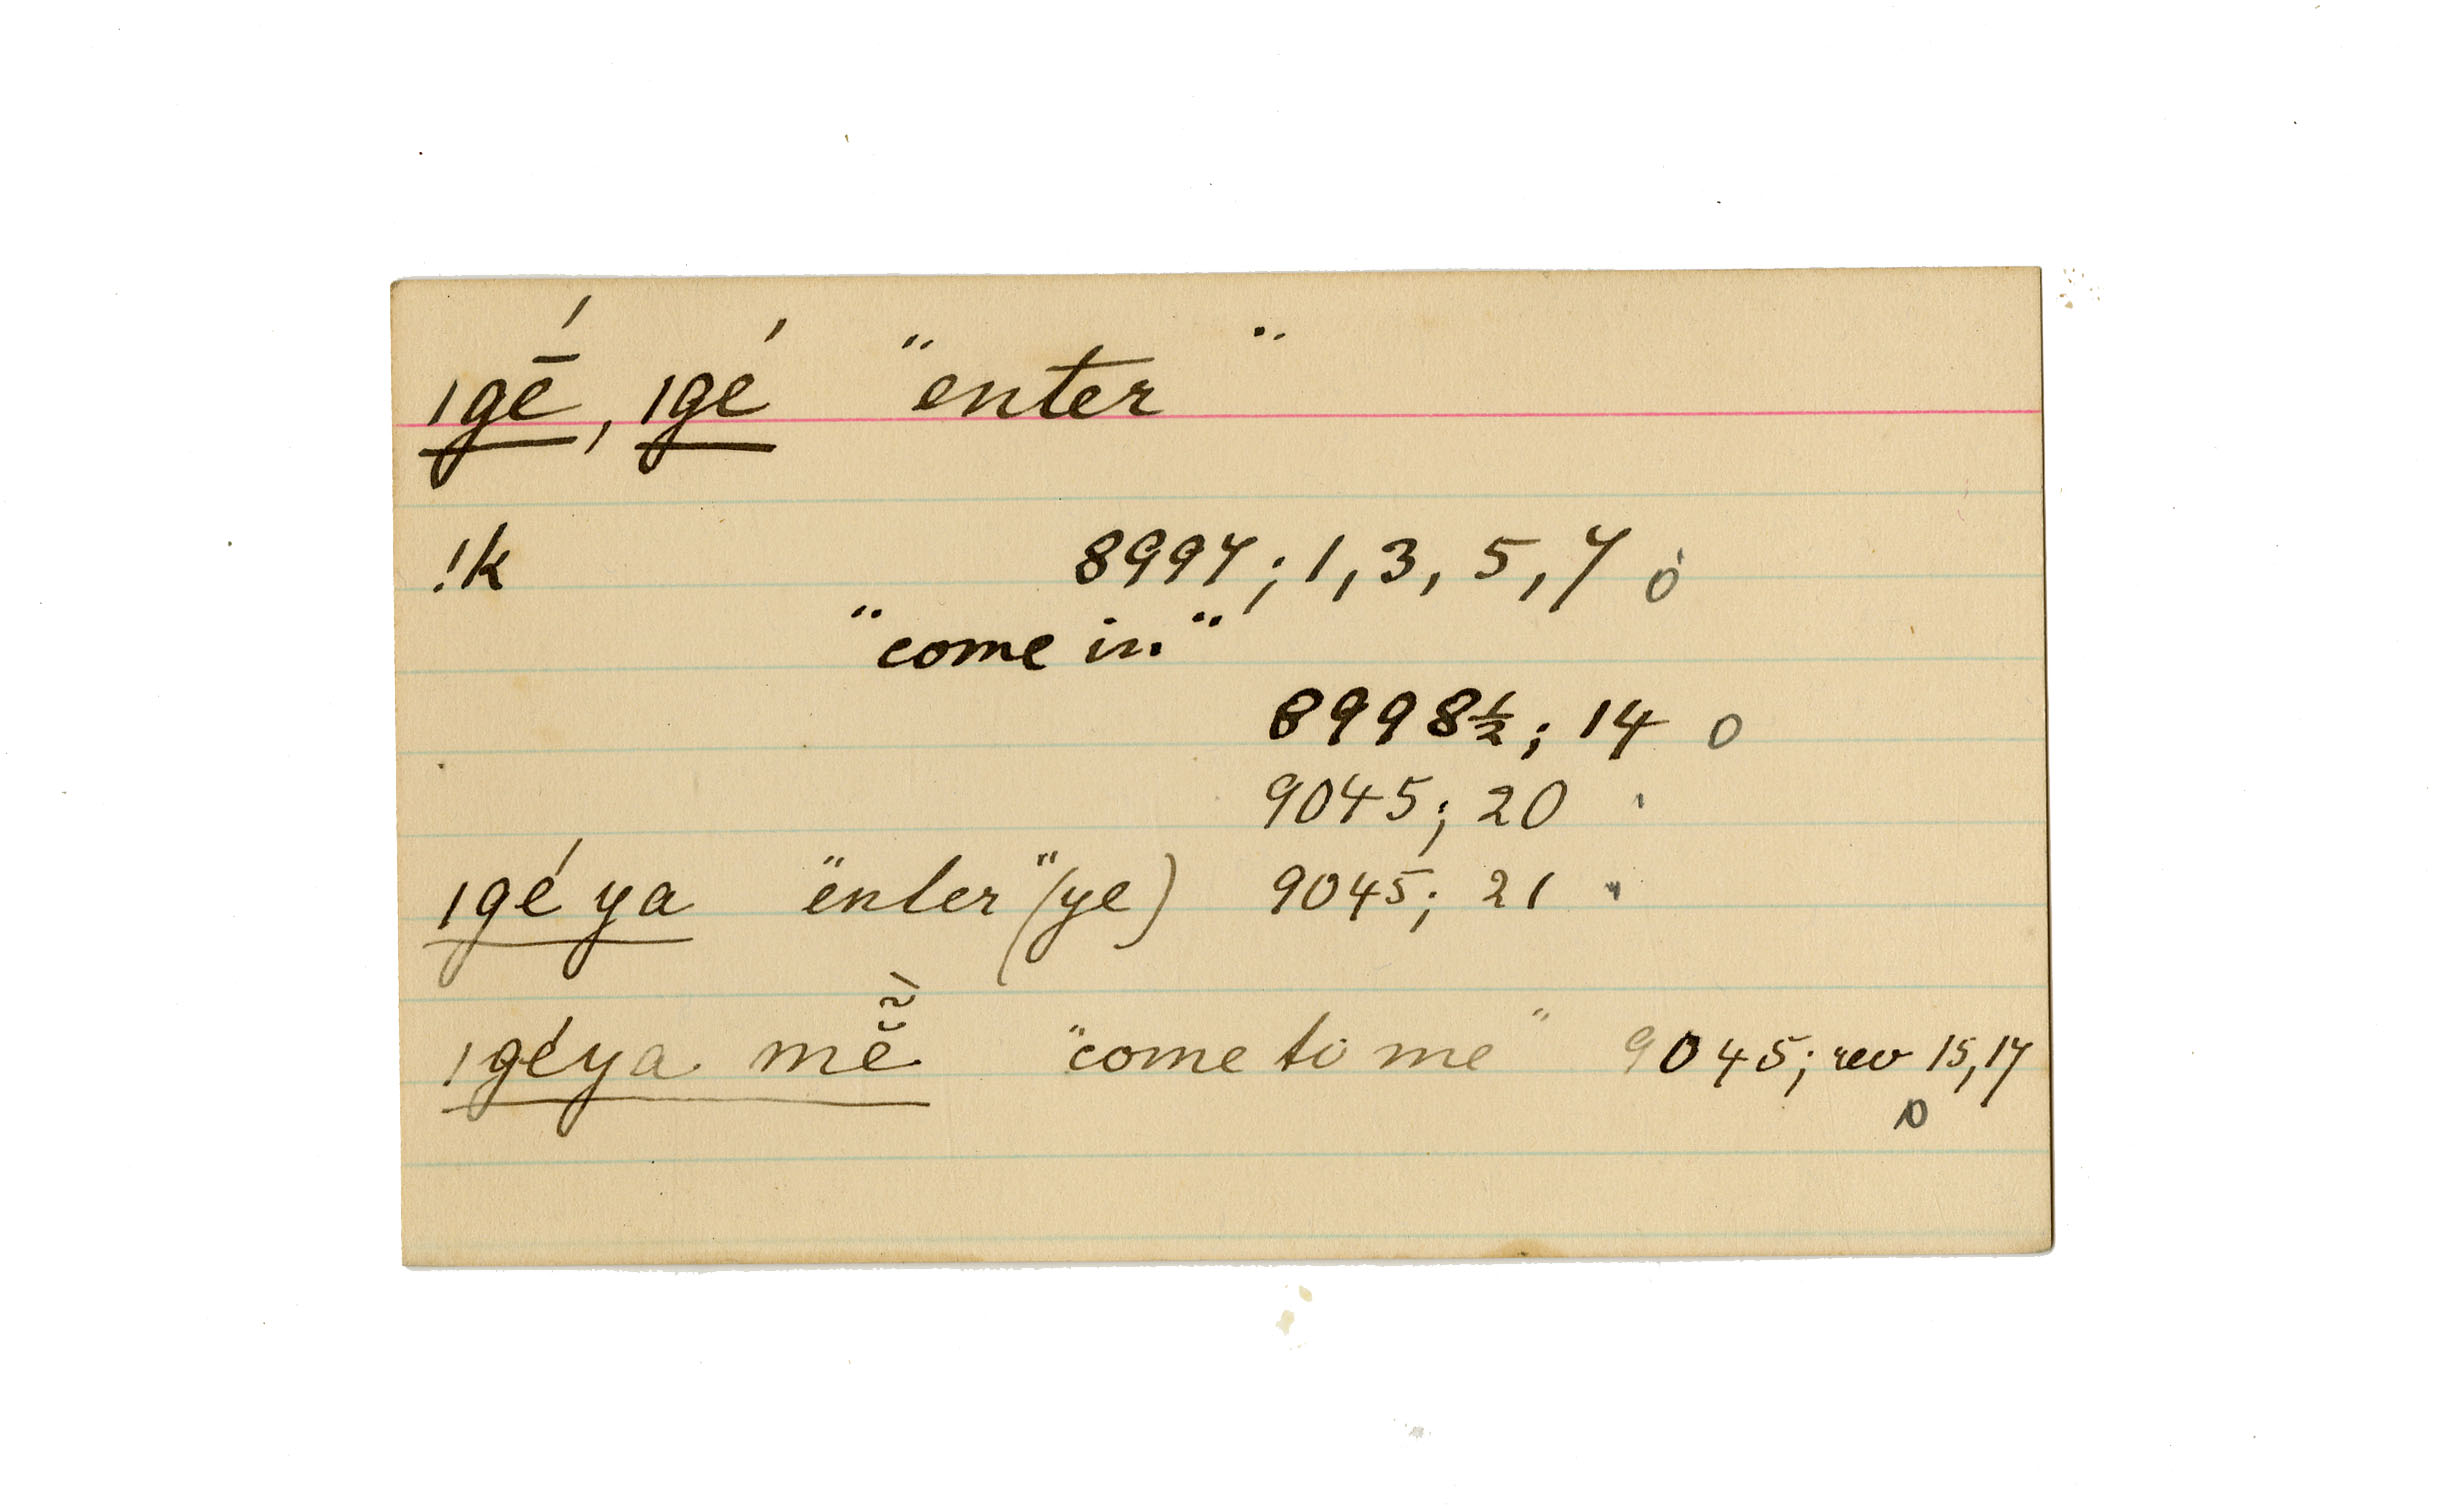 ıgḗ, ıgé "enter"
!k 8997; 1, 3, 5, 7 o
"come in"
8998½; 14 o
9045; 20
ıgé ya "enter" (ye) 9045; 21
ıgéya mĕ̃̀ "come to me" 9045; rev 15, 17
o